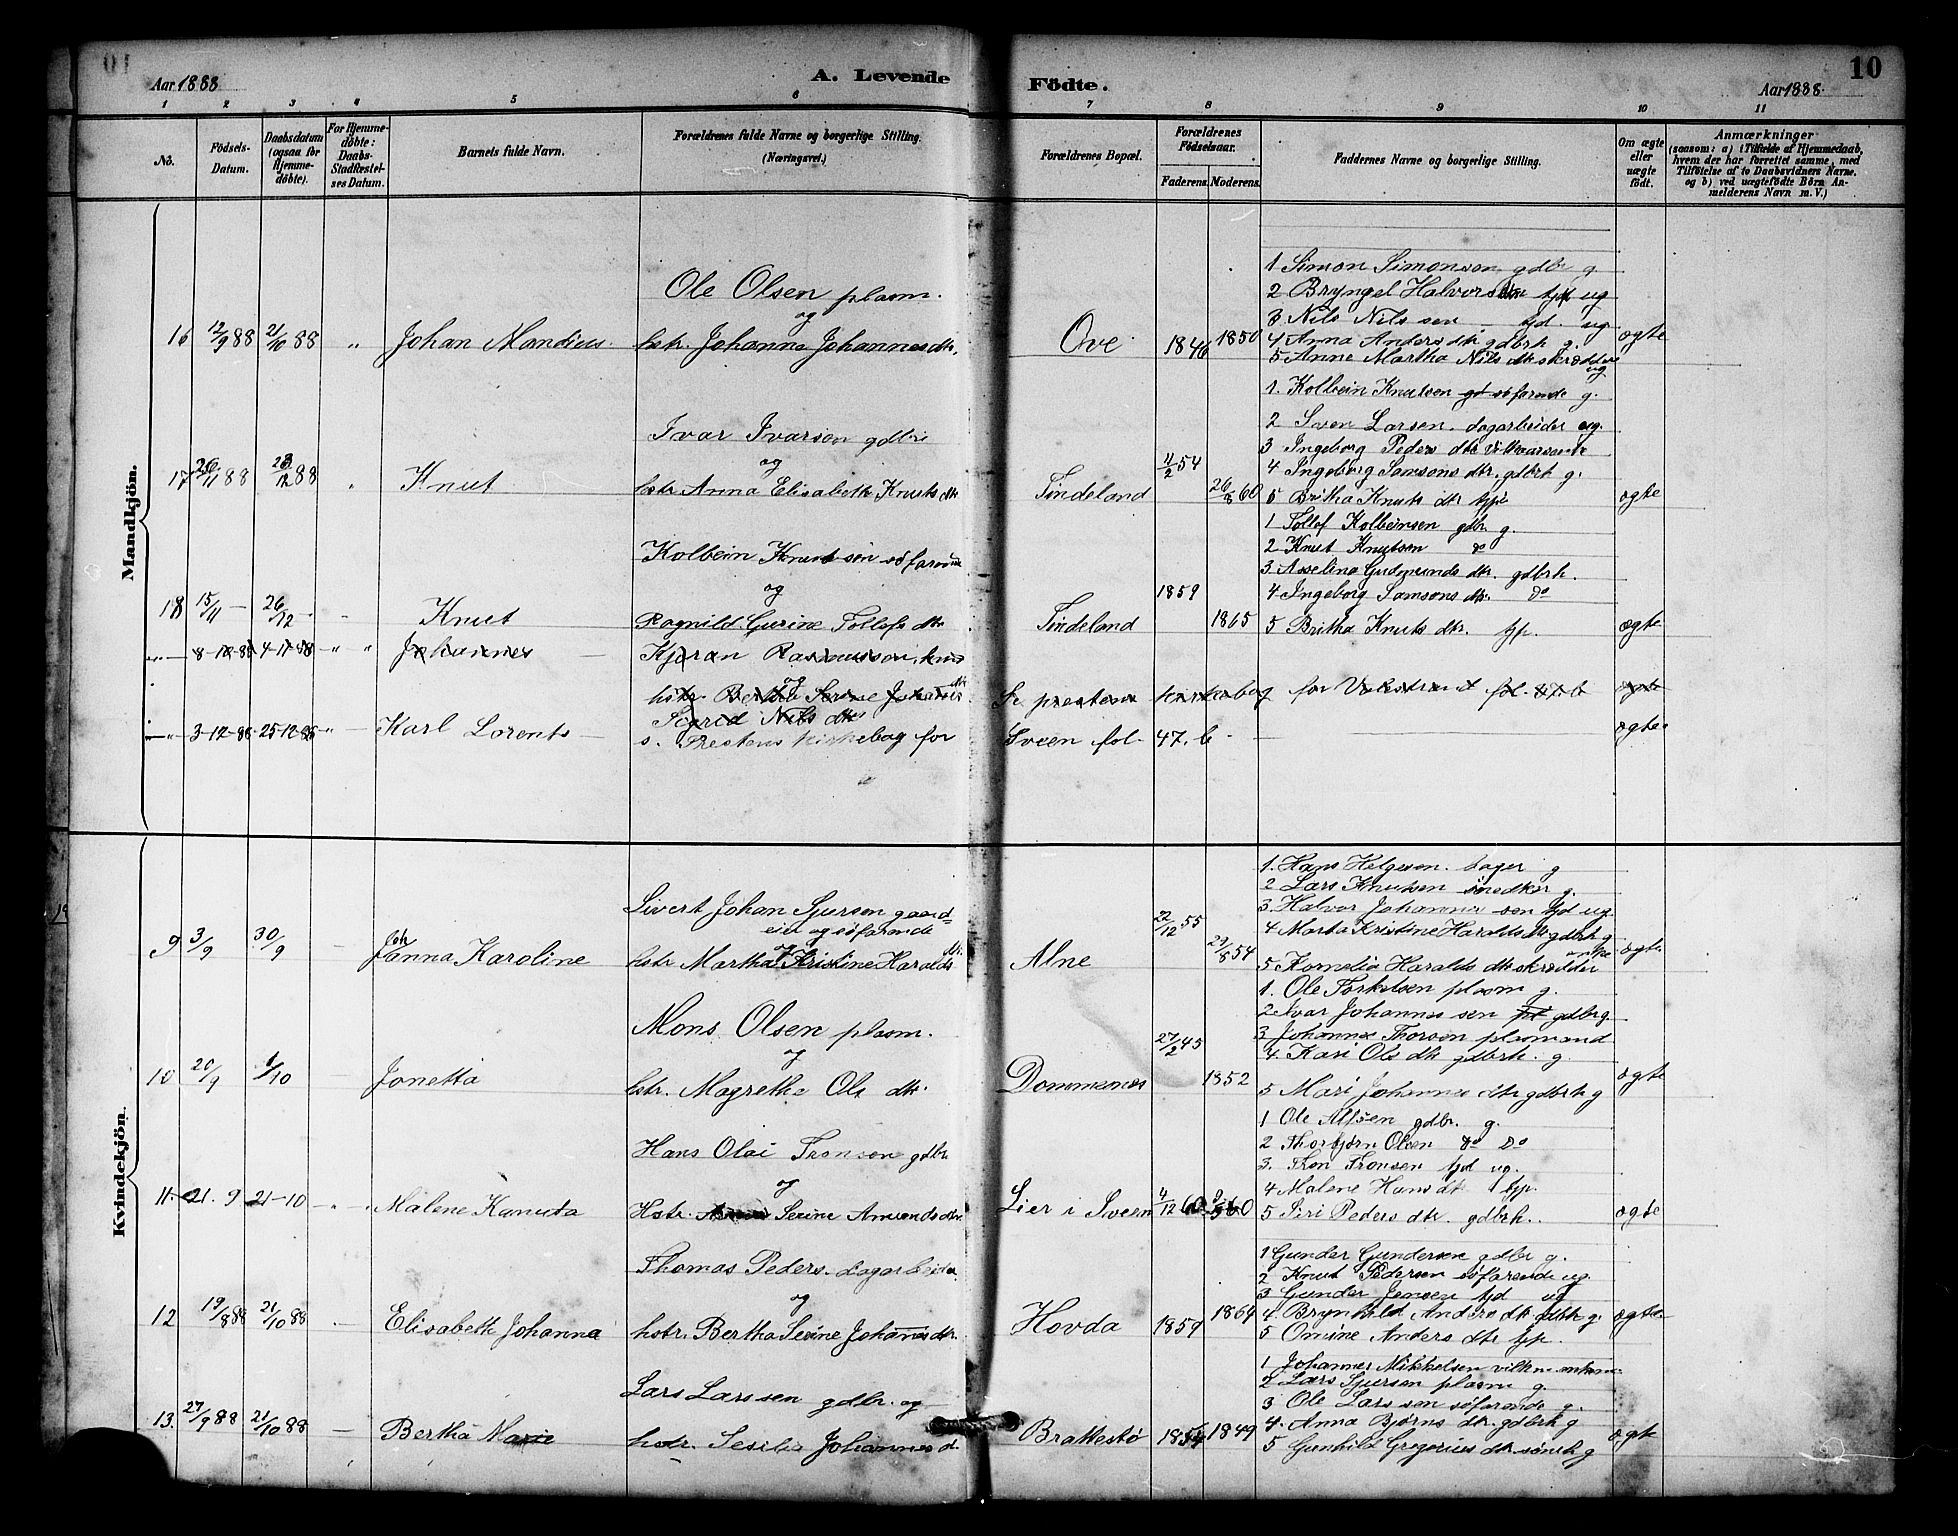 Aar 1888
A. Levende
Födte.
Aar 1888.
10
1 2 3 4 5 6 7 8 9 10 11
No.
Födsels-Datum.
Daabsdatum (ogsaa for Hjemme-döbte).
For Hjemme-döbte: Daabs-Stadfæstel-ses Datum.
Barnets fulde Navn.
Forældrenes fulde Navne og borgerlige Stilling. (Næringsvei.)
Forældrenes Bopæl.
Forældrenes Födselsaar.
Faderens. Moderens.
Faddernes Navne og borgerlige Stilling.
Om ægte eller uægte födt.
Anmærkninger
(saasom: a) i Tilfælde af Hjemmedaab,
hvem der har forrettet samme, med
Tilföielse af to Daabsvidners Navne.
og b) ved uægtefödte Börn An-
melderens Navn m. V.)
Mandkjön.
16 12/9 88 21/10 88 " Johan Mandius
Ole Olsen plasm.
og
hstr. Johanna Johannesdtr.
Ove 1846 1850
1 Simon Simonsen gdbr g.
2 Bryngel Halvorsen tjd ug
3 Nils Nilssen tjd. ug
4 Anna Andersdtr gdbrk g.
5 Anne Martha Nilsdtr skrædder
ug
ægte
17 26/11 88 26/12 88 " Knut
Ivar Ivarsen gdbr
og
hstr Anna Elisabeth Knutsdtr
Tindeland 4/2 54 26/8 60
1. Kolbein Knutsen gd söfarende g.
2 Sven Larsen. dagarbeider ug.
3 Ingeborg Pedersdtr
4 Ingeborg Samsonsdtr, gdbrk g.
5 Britha Knutsdtr tjp
ægte
18 15/11 - 26/12 - Knut
Kolbein Knutsen söfarende
og
Ragnild Gurine Tollefsdtr
Tindeland 1859 1865
1 Tollef Kolbeinsen gdbr g.
2 Knut Knutsen do
3 Asselina Gudmundsdtr. gdbrk.
4 Ingeborg Samsonsdtr. do
5 Britha Knutsdtr. tjp.
ægte
8-10-88 4-11-88 " " Johannes
Kjøran Rasmussen,
og
hstr. Bertha Serine Johannes dtr
Se prestens kirkebog for Valestrand fol. 87 b ægte
Sigrid Nilsdtr
3-12-88 25-12-88 " Karl Lorents
s. Prestens kirkebog for Sveen fol. 47. b ægte
Kvindekjön.
9 3/9 30/9 - Johanna Karoline
Sivert Johan Sjursen gaard=
eier og söfarende
og
hstr Martha Kristine Haralds dtr.
Alne 22/12 55 29/8 54
1. Hans Helgesen. bager g
2 Lars Knutsen snedker g.
3. Halvor Johannessen tjd ug.
4 Marta Kristine Haraldsdtr gdbrk g
5 Kornelia Haraldsdtr skrædder
ægte
10 20/9 1/10 Jonetta
Mons Olsen plasm.
og
hstr. Magretha Olsdtr.
Dommenes 27/2 45 1852
1. Ole Torkelsen plasm g.
2 Ivar Johannessen gdbr g.
3 Johannes Thorsen plasmand
4. Kari Olsdtr gdbrk. g.
5 Mari Johannesdtr gdbrk g
ægte
11 21. 9 21-10 - " Malene Kanuta
Hans Olai Tronsen gdbr.
og
Hstr. Serine Amundsdtr.
Lier i Sveen 4/12 60
1 Ole Alfsen gdbr. g.
2 Thorbjørn Olsen do do
3. Tron Tronsen tjd ug.
4 Malene Hansdtr tjp.
5 Siri Pedersdtr. gdbrk.
ægte
12 19/8 88 21/10 88 Elisabeth Johanna
Thomas Peders. dagarbeider.
og
hstr. Bertha Serine Johannesdtr.
Hovda 1859 1864
1 Gunder Gundersen gdbr g.
2 Knut Pedersen söfarende ug.
3 Gunder Jensen tjd ug
4. Brynhild Andersdtr gdbk g.
5 Omine Andersdtr tjp.
ægte
13. 27/9 88 21/10 88 - Bertha Marie
Lars Larssen gdbr. og
hstr. Sesilia Johannesd.
Brattestö 1854 1849
1 Johannes Mikkelsen
2 Lars Sjursen plasm g.
3 Ole Larssen söfarende g.
4. Anna Bjørnsdtr. gdbrk g
5 Gunhild Gregoriusdtr g
ægte